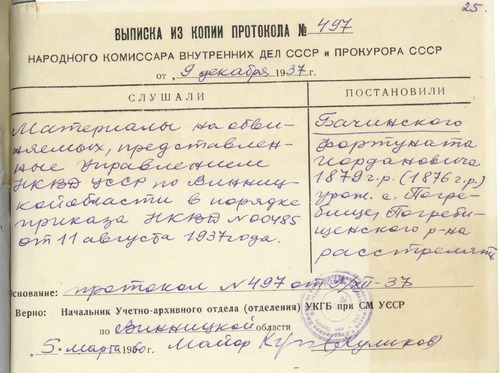 25.
ВЫПИСКА ИЗ КОПИИ ПРОТОКОЛА № 497
НАРОДНОГО КОМИССАРА ВНУТРЕННИХ ДЕЛ СССР и ПРОКУРОРА СССР
от „9 декабря 1937 г.
СЛУШАЛИ
Материалы на обви-
няемых, представлен-
ные Управлением
НКВД УССР по Винниц-
кой области в порядке
приказа НКВД №00485
от 11 августа 1937 года.
ПОСТАНОВИЛИ
Бачинского
Фортуната
Иордановича
1879 г.р. (1876 г.р.)
урож. с. Погре-
бище, Погреби-
щенского р-на
расстрелять
Основание: протокол N 497 от 9/XII-37
Верно: Начальник Учетно-архивного отдела (отделения) УКГБ при СМ УССР
по Винницкой области
„5. марта 1960 г. майор Куликов